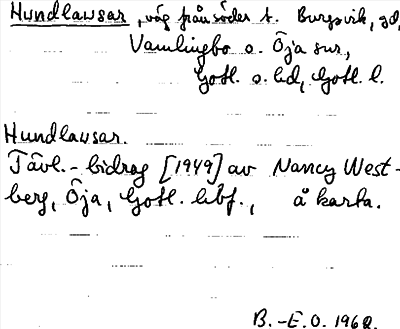 Hundlausar, väg från söder t. Burgsvik, gd,
Vamlingbo o. Öja snr,
Gotl. s. hd, Gotl. l.
Hundlausar.
Tävl.-bidrag [1949] av Nancy West-
berg, Öja, Gotl. hbf., å karta.
B.-E.O. 1968.